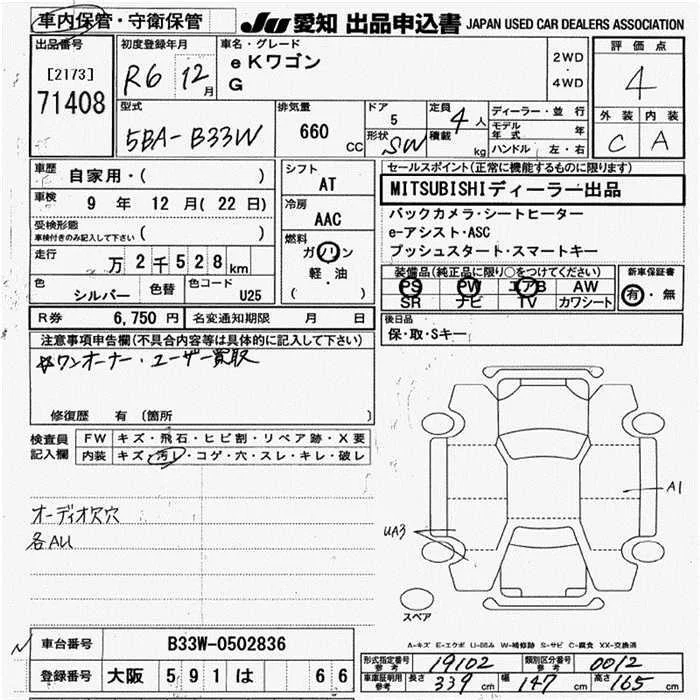 車内保管・守衛保管
JU 愛知 出品申込書 JAPAN USED CAR DEALERS ASSOCIATION
出品番号
[2173]
71408
初度登録年月
R6 12月
車名・グレード
eKワゴン
G
2WD
・
4WD
評価点
4
外装 内装
C A
型式
5BA-B33W
排気量
660 CC
ドア
5
形状
SW
定員
4人
積載
kg
ディーラー・並行
モデル年式
ハンドル 左・右
車歴
自家用・( )
車検
9年 12月(22日)
受検形態
車検付きのみ記入して下さい ( )
走行
万2千528km
色
シルバー
色替
色コード
U25
シフト
AT
冷房
AAC
燃料
ガソリン
軽・油
( )
セールスポイント(正常に機能するものに限ります)
MITSUBISHIディーラー出品
バックカメラ・シートヒーター
e-アシスト・ASC
プッシュスタート・スマートキー
装備品(純正品に限り○をつけてください)
PS PW エアB AW
SR ナビ TV カワシート
新車保証書
有・無
R券 6,750円
名変通知期限 月 日
後日品
保・取・Sキー
注意事項申告欄(不具合内容等は具体的に記入して下さい)
☆ワンオーナー・ユーザー買取
修復歴 有 〔箇所 〕
検査員
記入欄
FW キズ・飛石・ヒビ割・リペア跡・X要
内装 キズ・汚レ・コゲ・穴・スレ・キレ・破レ
オーディオ穴
各AU
A1
UA3
スペア
A-キズ E-エクボ U-凹み W-補修跡 S-サビ C-腐食 XX-交換済
車台番号 B33W-0502836
登録番号 大阪 591 は 66
形式指定番号
参考
19102
類別区分番号
参考
0012
車庫証明用
参考
長さ 339cm 幅 147cm 高さ 165cm